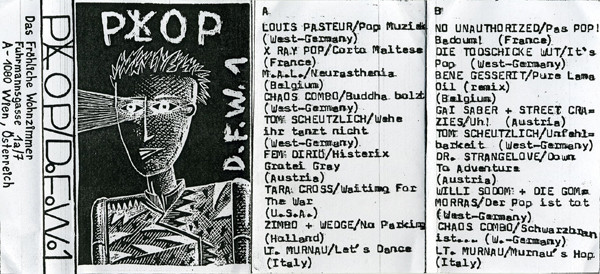 Das Fröhliche Wohnzimmer
Fuhrmannsgasse 1a/7
A-1080 Wien, Österreich
POP/D.F.W.1
POP
D.F.W.1
A
LOUIS PASTEUR/Pop Muzik
(West-Germany)
X RAY POP/Corto Maltese
(France)
M.A.L./Neurasthenia
(Belgium)
CHAOS COMBO/Buddha bolzt
(West-Germany)
TOM SCHEUTZLICH/Wehe
ihr tanzt nicht
(West-Germany)
FEM DIRIO/Histerix
Gratei Gray
(Austria)
TARA CROSS/Waiting For
The War
(U.S.A.)
ZIMBO + WEDGE/No Parking
(Holland)
LT. MURNAU/Let's Dance
(Italy)
B
NO UNAUTHORIZED/Pas POP!
Badoum! (France)
DIE TODSCHICKE WUT/It's
Pop (West-Germany)
BENE GESSERIT/Pure Lama
Oil (remix)
(Belgium)
GAI SABER + STREET CRA-
ZIES/Uh! (Austria)
TOM SCHEUTZLICH/Unfehl-
barkeit (West-Germany)
DR. STRANGELOVE/Down
To Adventure
(Austria)
WILLI SODOM + DIE GOM
MORRAS/Der Pop ist tot
(West-Germany)
CHAOS COMBO/Schwarzbran
ist... (W.-Germany)
LT. MURNAU/Murnau's Hop
(Italy)